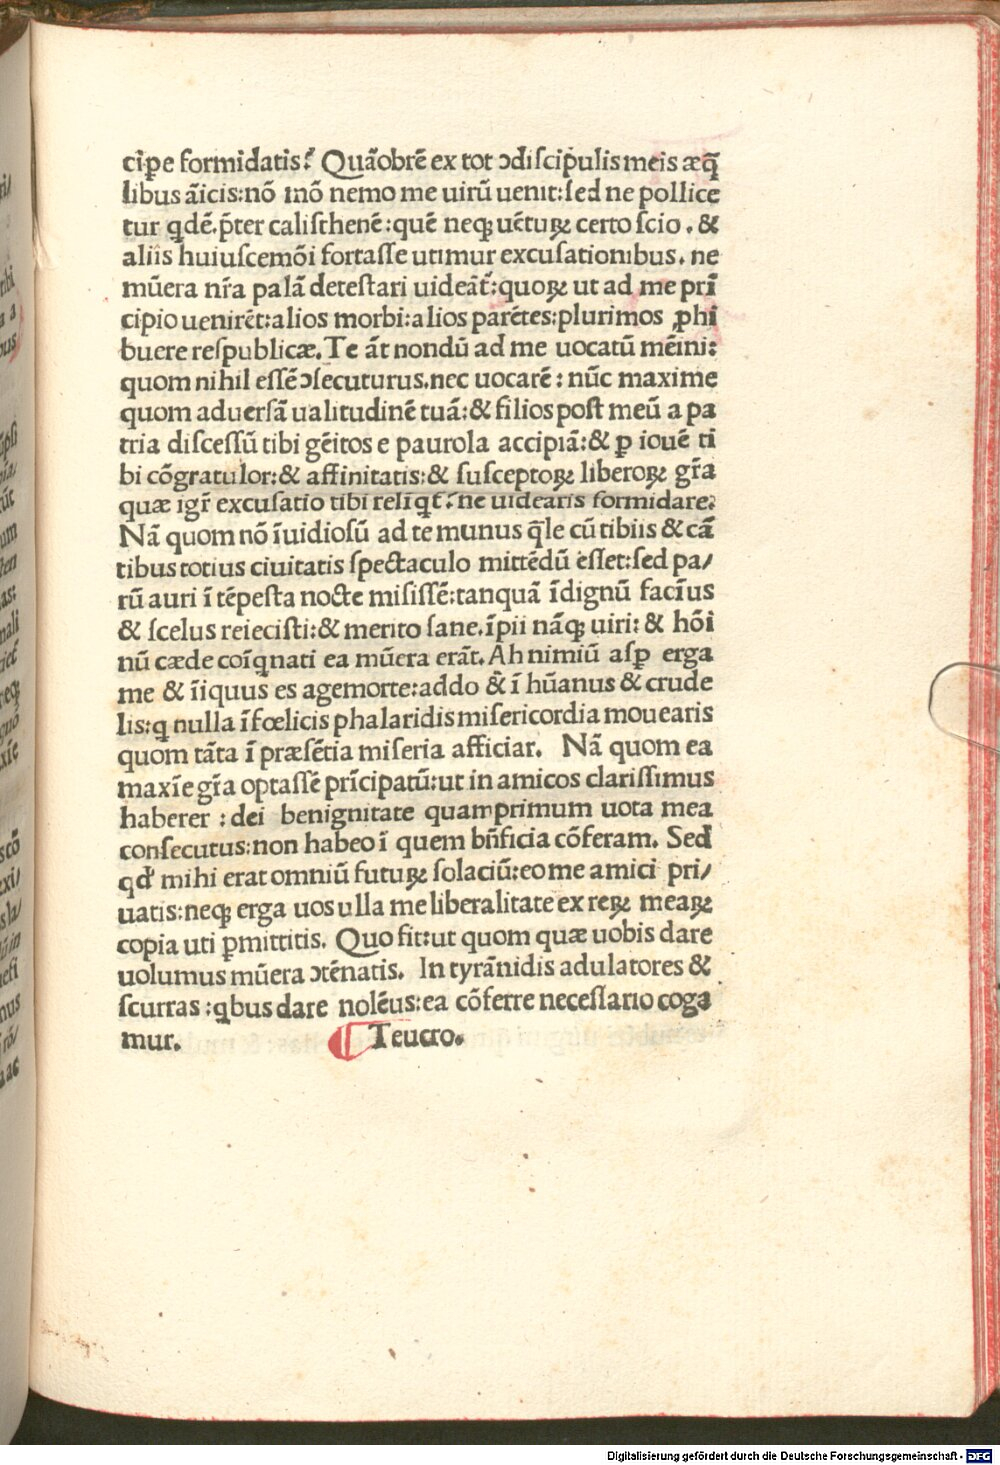 cip̱e formidatis? Quãobrẽ ex tot ↄdiſcipulis meis æq̃
libus ãicis:nõ mõ nemo me uirũ uenit:ſed ne pollice
tur qdẽ.p̃ter caliſthenẽ:quẽ neqꝫ uẽtuꝝ certo ſcio. &
aliis huiuſcemõi fortaſſe utimur excuſationibus. ne
mũera nr̃a palã deteſtari uideãt᷑:quoꝝ ut ad me pri
cipio uenirẽt:alios morbi:alios parẽtes:plurimos ꝓhi
buere reſpublicæ. Te ãt nondũ ad me uocatũ mẽini:
quom nihil eſſẽ ↄſecuturus.nec uocarẽ: nũc maxime
quom aduerſã ualitudinẽ tuã:& filios poſt meũ a pa
tria diſceſſũ tibi gẽitos e paurola accipiã:& ꝑ iouẽ ti
bi cõgratulor:& affinitatis:& ſuſceptoꝝ liberoꝝ gr̃a
quæ igr̃ excuſatio tibi relĩqt᷑: ne uidearis formidare?
Nã quom nõ ĩuidioſũ ad te munus q̃le cũ tibiis & cã
tibus totius ciuitatis ſpectaculo mittẽdũ eſſet:ſed pa/
rũ auri ĩ tẽpeſta nocte miſiſſẽ:tanquã ĩdignũ facĩus
& ſcelus reieciſti:& merito ſane.ĩpii nãqꝫ uiri: & hõi
nũ cæde coĩqnati ea mũera erãt. Ah nimiũ aſꝑ erga
me & ĩiquus es agemorte:addo & ĩ hũanus & crude
lis:q nulla ĩfœlicis phalaridis miſericordia mouearis
quom tãta ĩ præſẽtia miſeria afficiar. Nã quom ea
maxĩe gr̃a optaſſẽ prĩcipatũ:ut in amicos clariſſimus
haberer : dei benignitate quamprimum uota mea
conſecutus:non habeo ĩ quem bñficia cõferam. Sed
qd' mihi erat omniũ futuꝝ ſolaciũ:eo me amici pri/
uatis:neqꝫ erga uos ulla me liberalitate ex reꝝ meaꝝ
copia uti ꝑmittitis. Quo fit:ut quom quæ uobis dare
uolumus mũera ↄtẽnatis. In tyrãnidis adulatores &
ſcurras :qbus dare nolẽus:ea cõferre neceſſario coga
mur. Teucro.
Digitalisierung gefördert durch die Deutsche Forschungsgemeinschaft - DFG